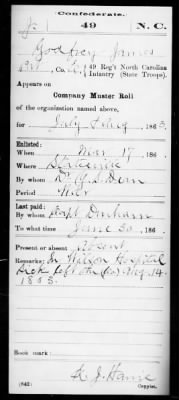 Confederate.
J 49 N.C.
Godfrey James
Pvt, Co. C, 49 Reg't North Carolina
Infantry (State Troops).
Appears on
Company Muster Roll
of the organization named above,
for July & Aug, 1863.
Enlisted:
When Mar 17, 186
Where Statesville
By whom
Period War
Last paid:
By whom Capt Durham
To what time June 30, 186
Present or absent Absent
Remarks: In Wilson Hospital
Sick left at Aug. 14.
1863.
Book mark:
(642) Copyist.